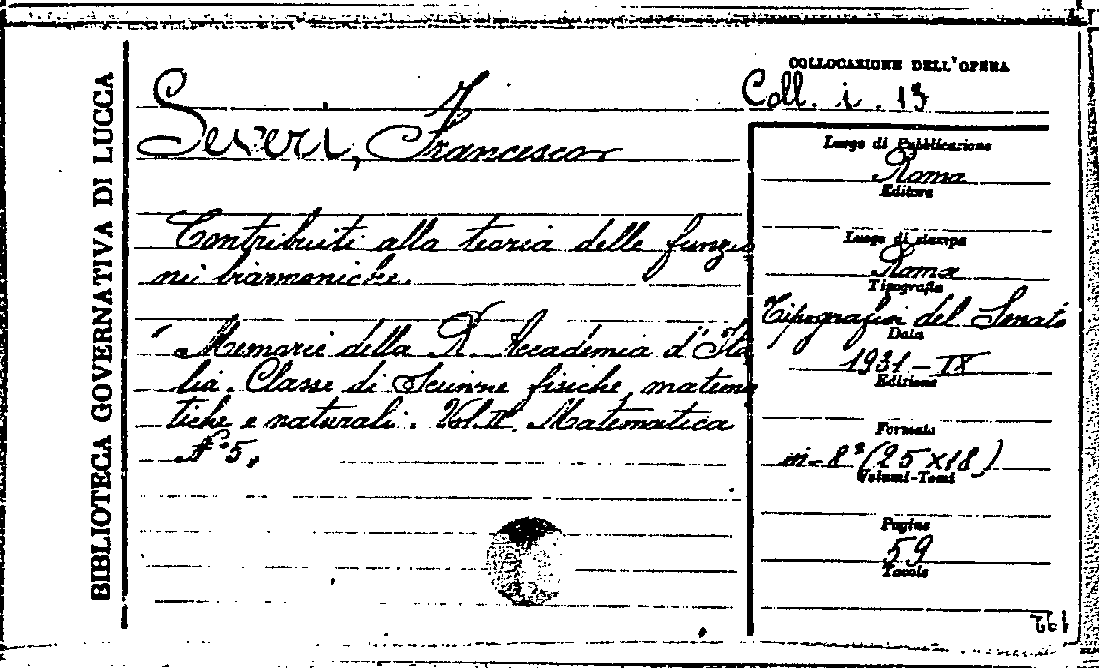 BIBLIOTECA GOVERNATIVA DI LUCCA
COLLOCAZIONE DELL'OPERA
Coll. i. 13
Severi, Francesco
Contributi alla teoria delle funzio
ni biarmoniche.
Memorie della R. Accademia d'Ita
lia. Classe di Scienze fisiche, matema
tiche e naturali. Vol. II. Matematica
N. 5.
Luogo di Pubblicazione
Roma
Editore
Luogo di stampa
Roma
Tipografia
Tipografia del Senato
Data
1931 - IX
Edizione
Formato
in-8° (25 x 18)
Volumi-Tomi
Pagine
59
Tavole